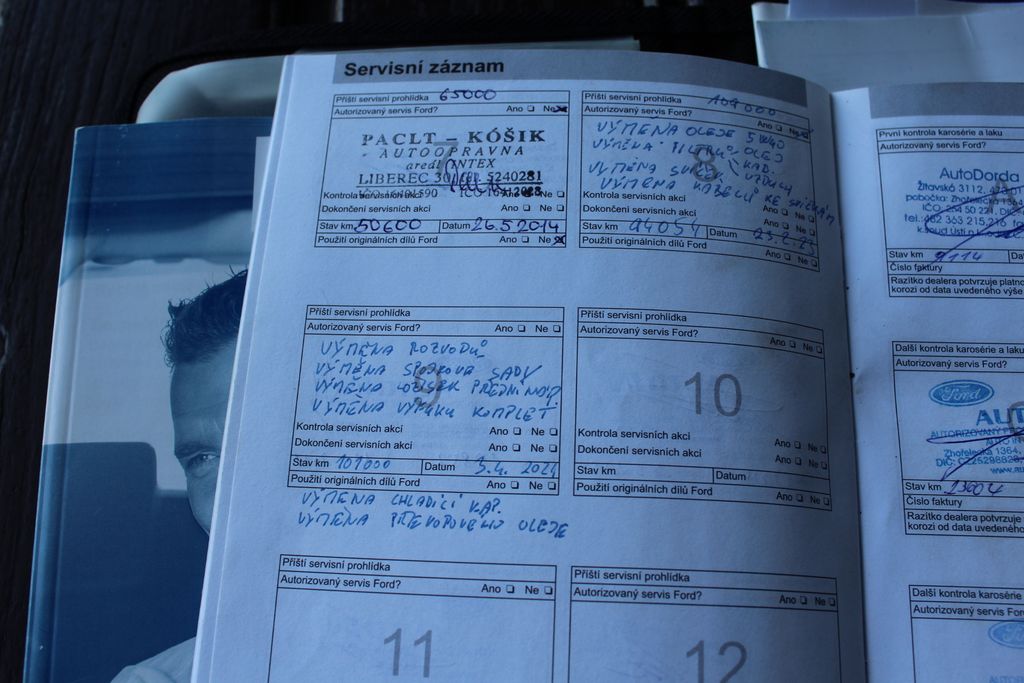 Servisní záznam
Příští servisní prohlídka 65000
Autorizovaný servis Ford? Ano Ne
PACLT – KÓŠIK
- AUTOOPRAVNA
areál INTEX
LIBEREC 30 5240281
Kontrola servisních akcí Ne
Dokončení servisních akcí Ano Ne
Stav km 50600 Datum 26.5.2014
Použití originálních dílů Ford Ano Ne
Příští servisní prohlídka 109000
Autorizovaný servis Ford? Ano Ne
VÝMĚNA OLEJE 5W40
VÝMĚNA FILTRŮ OLEJ
KAB.
VZDUCH
8
VÝMĚNA
VÝMĚNA KABELŮ KE SVÍČKÁM
Kontrola servisních akcí Ano Ne
Dokončení servisních akcí Ano Ne
Stav km 94054 Datum
Použití originálních dílů Ford Ano Ne
Příští servisní prohlídka
Autorizovaný servis Ford? Ano Ne
VÝMĚNA ROZVODŮ
VÝMĚNA SPOJKOVÁ SADY
VÝMĚNA LOŽISEK PŘEDNÍ NÁP.
9
VÝMĚNA VÝFUKU KOMPLET
Kontrola servisních akcí Ano Ne
Dokončení servisních akcí Ano Ne
Stav km 101000 Datum 3.4. 2021
Použití originálních dílů Ford Ano Ne
VÝMĚNA CHLADÍCÍ KAP.
VÝMĚNA PŘEVODOVÉHO OLEJE
Příští servisní prohlídka
Autorizovaný servis Ford? Ano Ne
10
Kontrola servisních akcí Ano Ne
Dokončení servisních akcí Ano Ne
Stav km Datum
Použití originálních dílů Ford Ano Ne
Příští servisní prohlídka
Autorizovaný servis Ford? Ano Ne
11
Příští servisní prohlídka
Autorizovaný servis Ford? Ano Ne
12
První kontrola karosérie a laku
Autorizovaný servis Ford?
AutoDorda
Žitavská 3112, 470 01
pobočka: Zhořelecká 1364
tel.: 482 363 215, 216
Stav km 9114 Da
Číslo faktury
Razítko dealera potvrzuje platno
korozi od data uvedeného výše
Další kontrola karosérie a laku
Autorizovaný servis Ford
Ford
AUT
AUTORIZOVANÝ
Zhořelecká 1364,
DIČ: CZ25298828,
Stav km 23604
Číslo faktury
Razítko dealera potvrzuje
korozi od data uvedeného
Další kontrola karosérie
Autorizovaný servis Ford